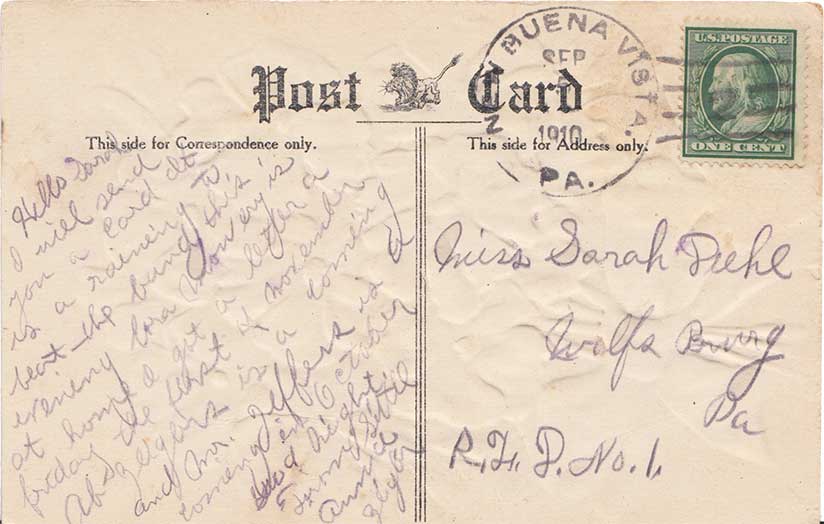 Post Card
This side for Correspondence only.
This side for Address only.
BUENA VISTA.
SEP
1910
PA.
U.S. POSTAGE
ONE CENT
Hello Sarah
I will send
you a card it
is a raining to
beat the band this
evening Cora Mowery is
at home I got a letter a
friday the first of november
is a coming a
and Mr. Jeffers is a
coming in October
Good Night
from
Annie
Miss Sarah Diehl
Wolfs Burg
Pa
R.F.D. No. 1.